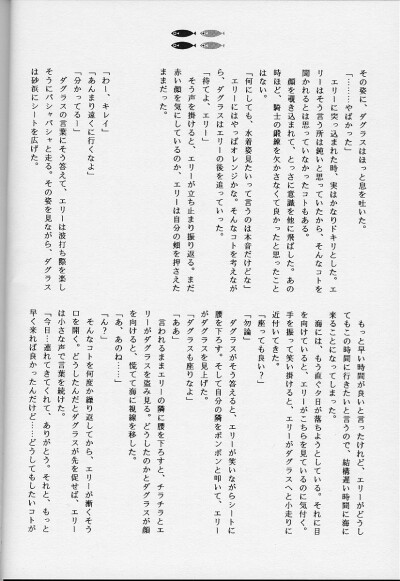 その姿に、ダグラスはほっと息を吐いた。
「……やばかった」
エリーに突っ込まれた時、実はかなりドキリとした。エ
リーはそう言う所は鈍いと思っていたから、そんなコトを
聞かれるとは思っていなかったコトもある。
顔を覗き込まれて、とっさに意識を他に飛ばした。あの
時ほど、騎士の鍛錬を欠かさなくて良かったと思ったこと
はない。
「何にしても、水着姿見たいって言うのは本音だけどな」
エリーにはやっぱオレンジかな。そんなコトを考えなが
ら、ダグラスはエリーの後を追っていった。
「待てよ、エリー」
そう声を掛けると、エリーが立ち止まり振り返る。まだ
赤い顔を気にしているのか、エリーは自分の頬を押さえた
ままだった。
「わー、キレイ」
「あんまり遠くに行くなよ」
「分かってるー」
ダグラスの言葉にそう答えて、エリーは波打ち際を楽し
そうにパシャパシャと走る。その姿を見ながら、ダグラス
は砂浜にシートを広げた。
もっと早い時間が良いと言ったけれど、エリーがどうし
てもこの時間に行きたいと言うので、結構遅い時間に海に
来ることになってしまった。
海には、もう直ぐ夕日が落ちようとしている。それに目
を向けていると、エリーがこちらを見ているのに気付く。
手を振って笑い掛けると、エリーがダグラスへと小走りに
近付いてきた。
「座っても良い？」
「勿論」
ダグラスがそう答えると、エリーが笑いながらシートに
腰を下ろす。そして自分の隣をポンポンと叩いて、エリー
がダグラスを見上げた。
「ダグラスも座りなよ」
「ああ」
言われるままエリーの隣に腰を下ろすと、チラチラとエ
リーがダグラスを盗み見る。どうしたのかとダグラスが顔
を向けると、慌てて海に視線を移した。
「あ、あのね……」
「ん？」
そんなコトを何度か繰り返してから、エリーが漸くそう
口を開く。どうしたんだとダグラスが先を促せば、エリー
は小さな声で言葉を続けた。
「今日…連れてきてくれて、ありがとう。それと、もっと
早く来れば良かったんだけど……どうしてもしたいコトが